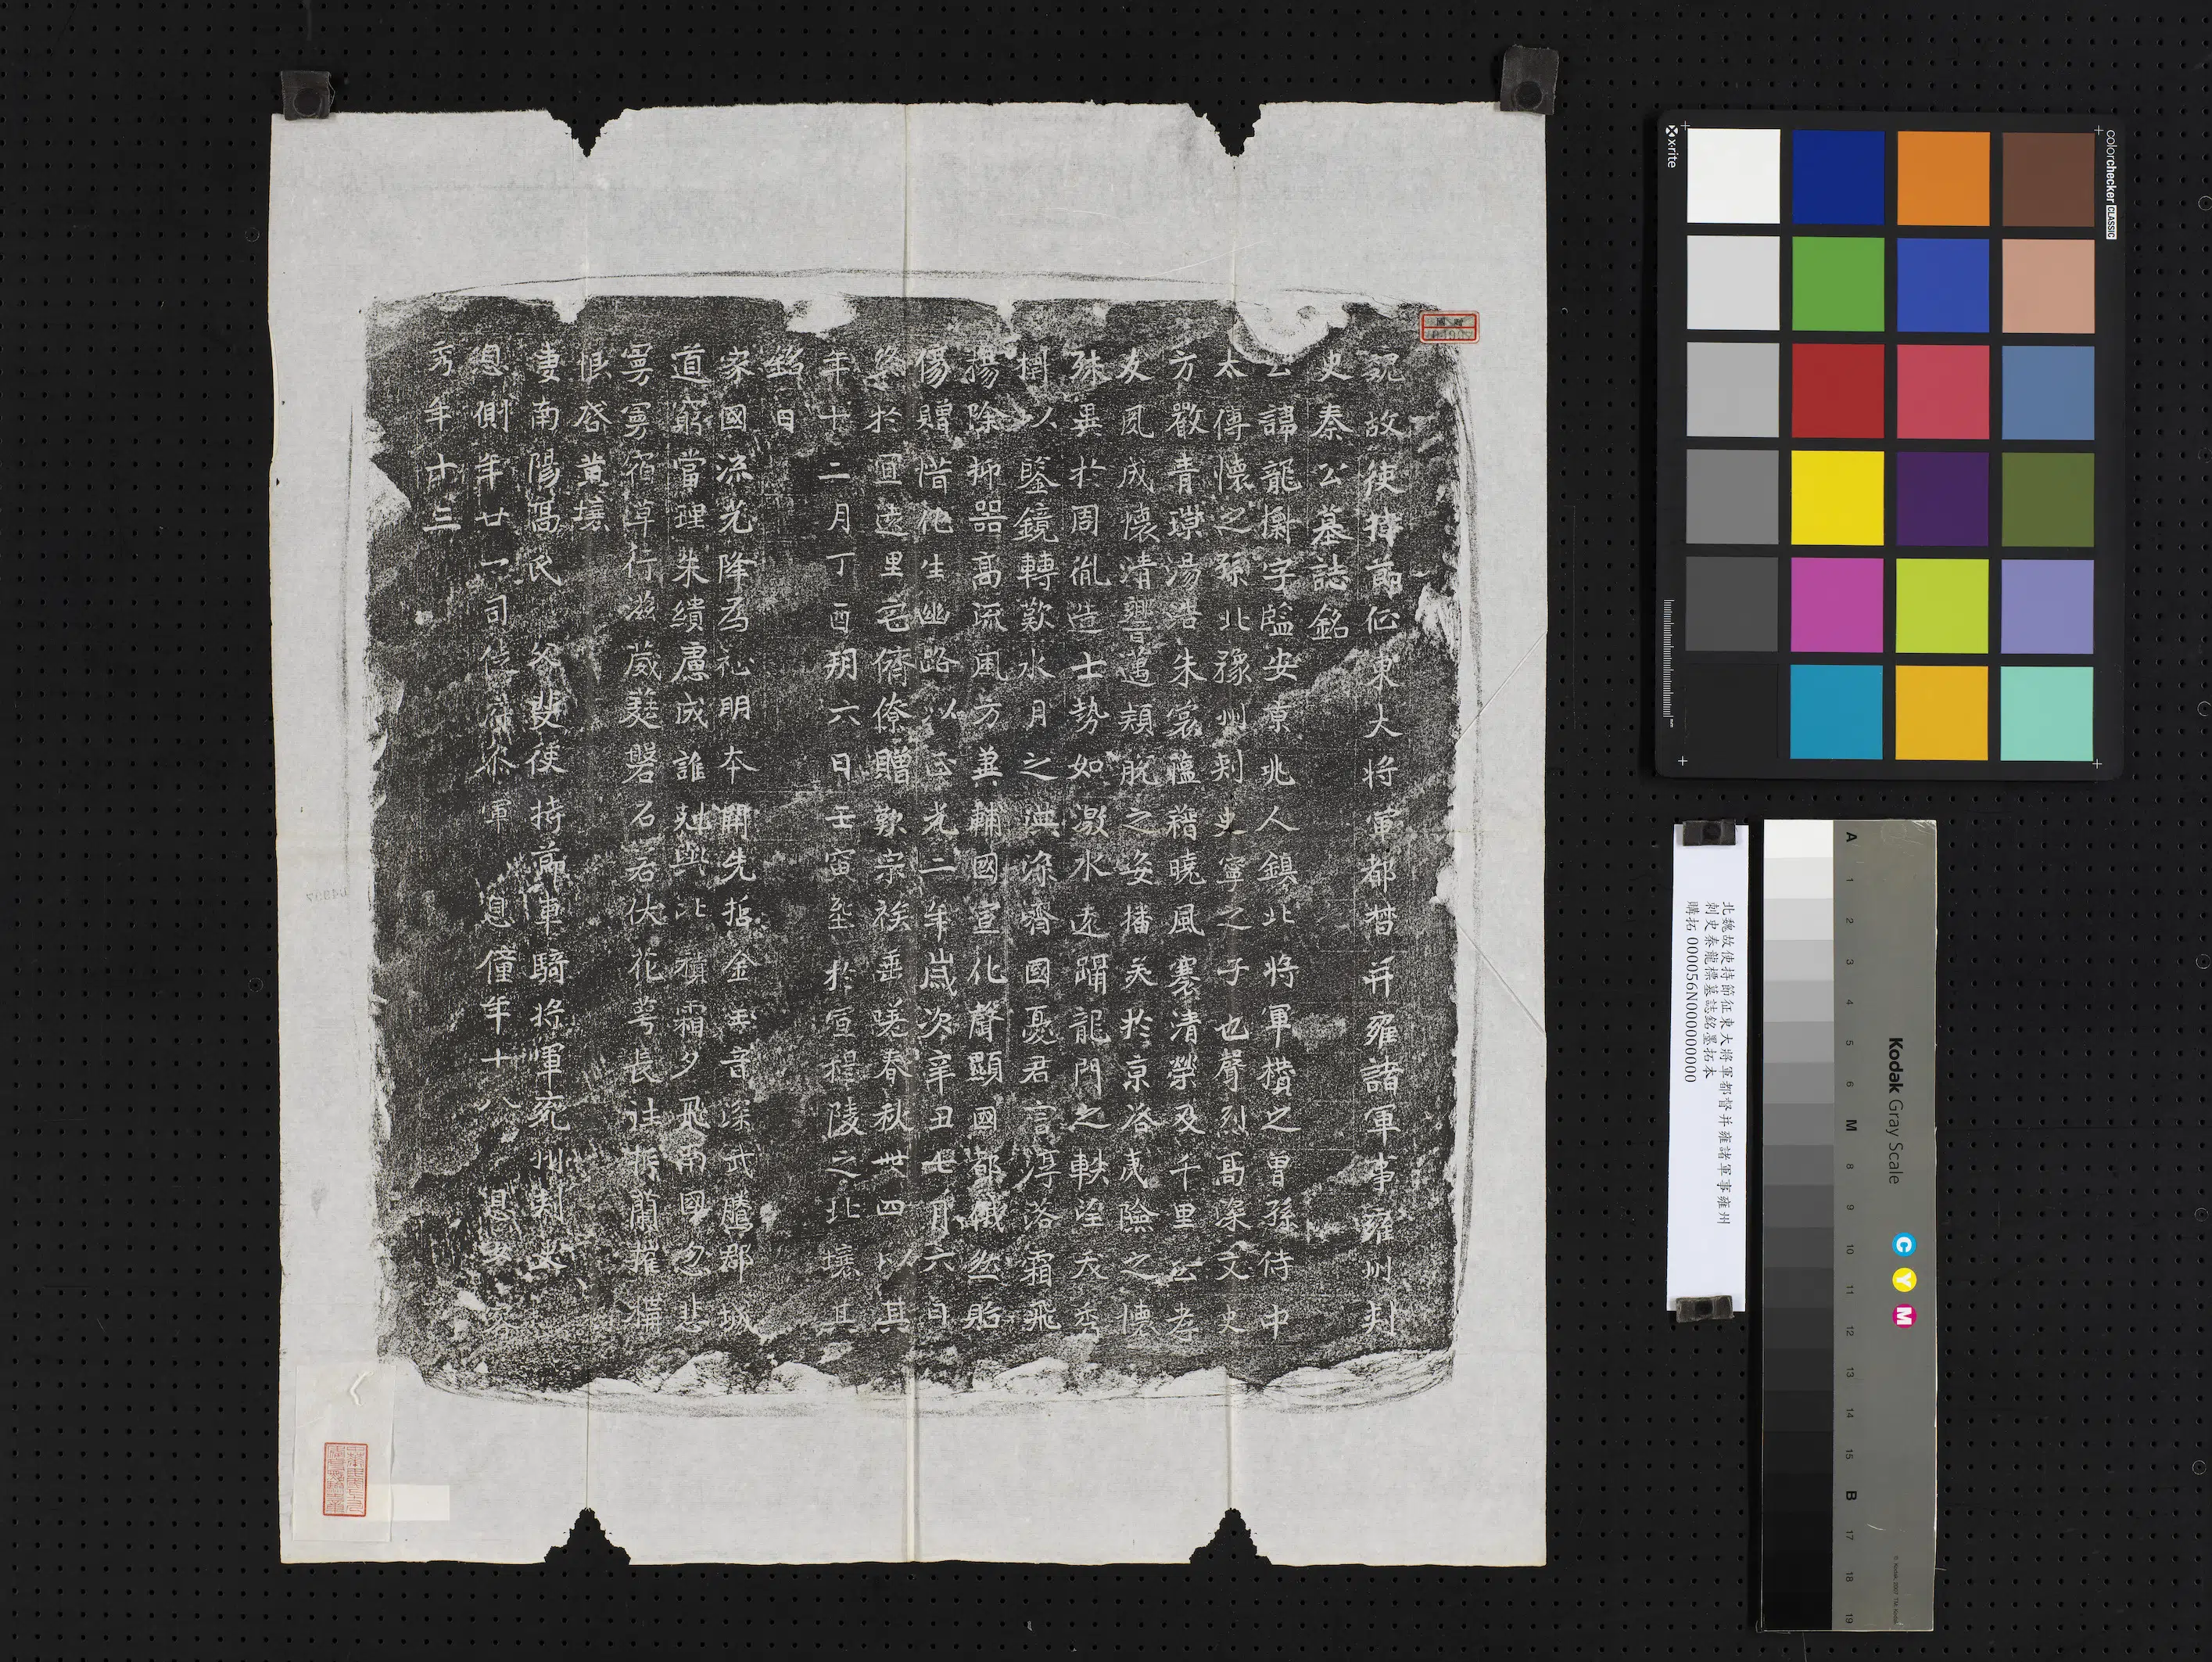 魏故使持節征東大将軍都督并雍諸軍事雍州刾
史秦公墓誌銘
公諱龍標字監安京兆人鎮北将軍櫕之曾孫侍中
太傅懷之孫北豫州刾史寧之子也聲烈高深文史
方徽青璟湯浩朱裳蘊藉曉風褰清榮及千里公孝
友夙成懷清響邁頰脫之姿播美於京洛夷險之懷
殊異於周胤造士勢如激水遠躡龍門之軼淫天秀
以鑒鏡轉歎水月之洪深濟國憂君言淳落霜飛
揚除抑器高流風方並輔國宣化聲顯國都俄然貽
傷贈惜化生幽路以正光二年歲次辛丑七月六日
終於宜遠里宅儕僚贈歎宗族垂嗟春秋卌四以其
年十二月丁酉朔六日壬寅塟於宣樏陵之北壤其
銘曰
家國流光降為祉明本開先哲金玉音深武騰郡城
道窮當理朱繢慮成誰尅與北積霜夕飛雨國忽悲
寥寥宿草行滋葳蕤磐石君伏花萼長往摧蘭摧
恨啓黄壤
妻南陽馮氏 父斐使持節車騎将軍兖州刾史
息側年廿一司徒府叅軍 息僮年十八 息女
年十三
北魏故使持節征東大將軍都督并雍諸軍事雍州
刺史秦龍標墓誌銘墨拓本
購拓 000056N000000000
x-rite
colorchecker CLASSIC
Kodak Gray Scale
C Y M
A 1 2 3 4 5 6 M 8 9 10 11 12 13 14 15 B 17 18 19